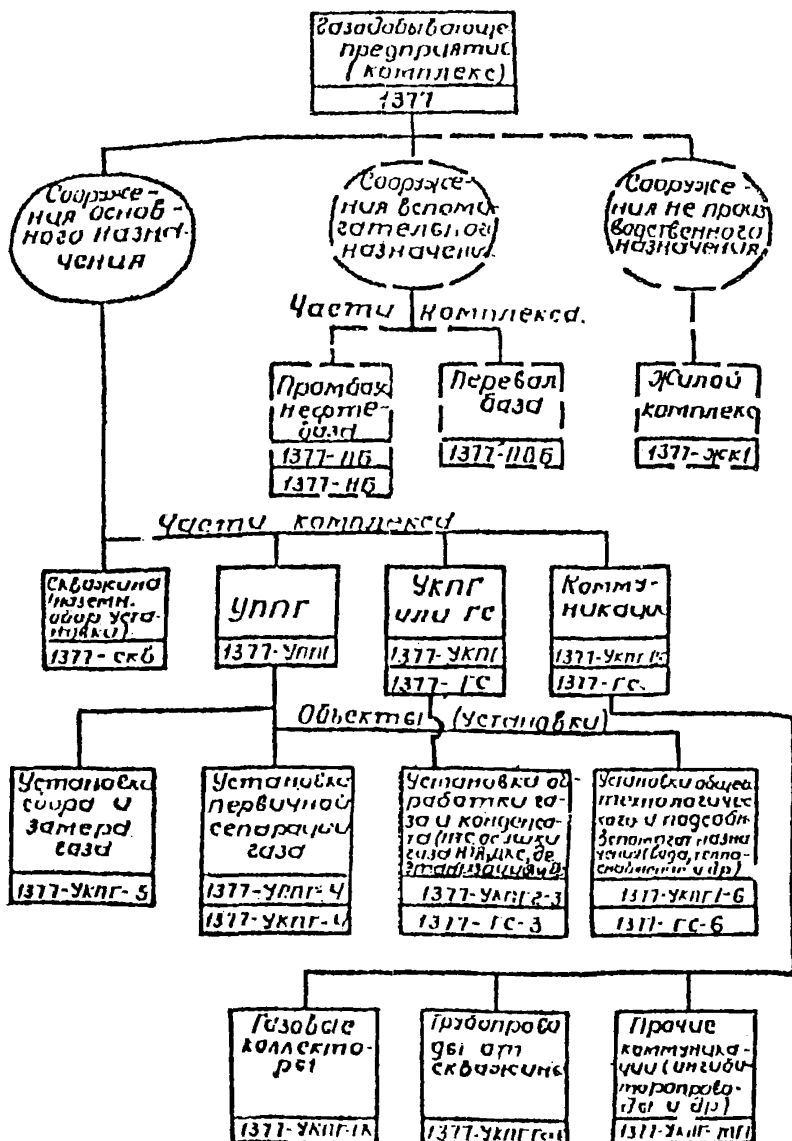 Газодобывающе
предприятие
(комплекс)
1377
Сооруже-
ния основ-
ного назна-
чения
Сооруже-
ния вспомо-
гательного
назначени
Сооруже-
ния не произ
водственного
назначения
Части комплекса.
Промбаза
нефте-
база
1377-ПБ
1377-НБ
Перевал
база
1377-ПВБ
Жилой
комплекс
1377-ЖК1
Части комплекса
Скважина
(наземн.
обор уста-
новки)
1377-скв
УППГ
1377-УППГ
УКПГ
или ГС
1377-УКПГ
1377-ГС
Комму-
никации
1377-УКПГ
1377-ГС
Объекты (установки)
Установка
сбора и
замера
газа
1377-УКПГ-5
Установка
первичной
сепарации
газа
1377-УППГ-4
1377-УКПГ-4
Установки об-
работки га-
за и конденса-
та (НТС
газа НТА, ДКС, де
1377-УКПГ2-3
1377-ГС-3
Установки общеа
технологичес
кого и подсобн
вспомогат назна
чения (вода, тепло-
снабжение и др)
1377-УКПГ1-6
1377-ГС-6
Газовые
коллекто-
ры
1377-УКПГ-ГК
Трубопрово
ды от
скважины
1377-УКПГ
Прочие
коммуника-
ции (ингиби-
торопрово-
ды и др)
1377-УКПГ-МП